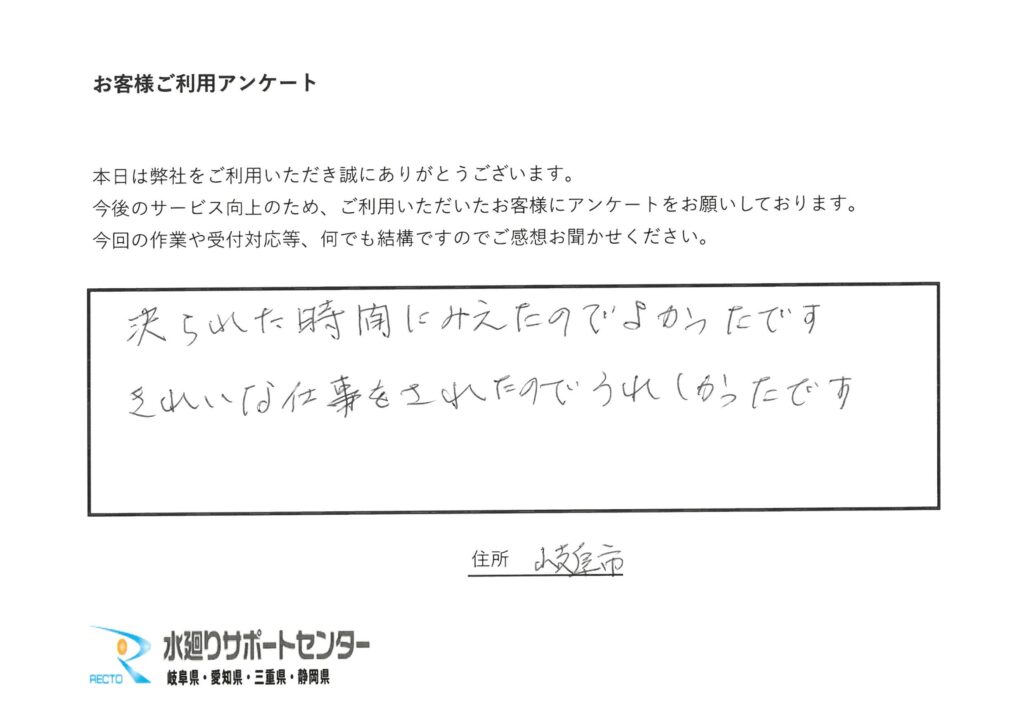 お客様ご利用アンケート
本日は弊社をご利用いただき誠にありがとうございます。
今後のサービス向上のため、ご利用いただいたお客様にアンケートをお願いしております。
今回の作業や受付対応等、何でも結構ですのでご感想お聞かせください。
決られた時間にみえたのでよかったです
きれいな仕事をされたのでうれしかったです
住所 岐阜市
水廻りサポートセンター
RECTO 岐阜県・愛知県・三重県・静岡県